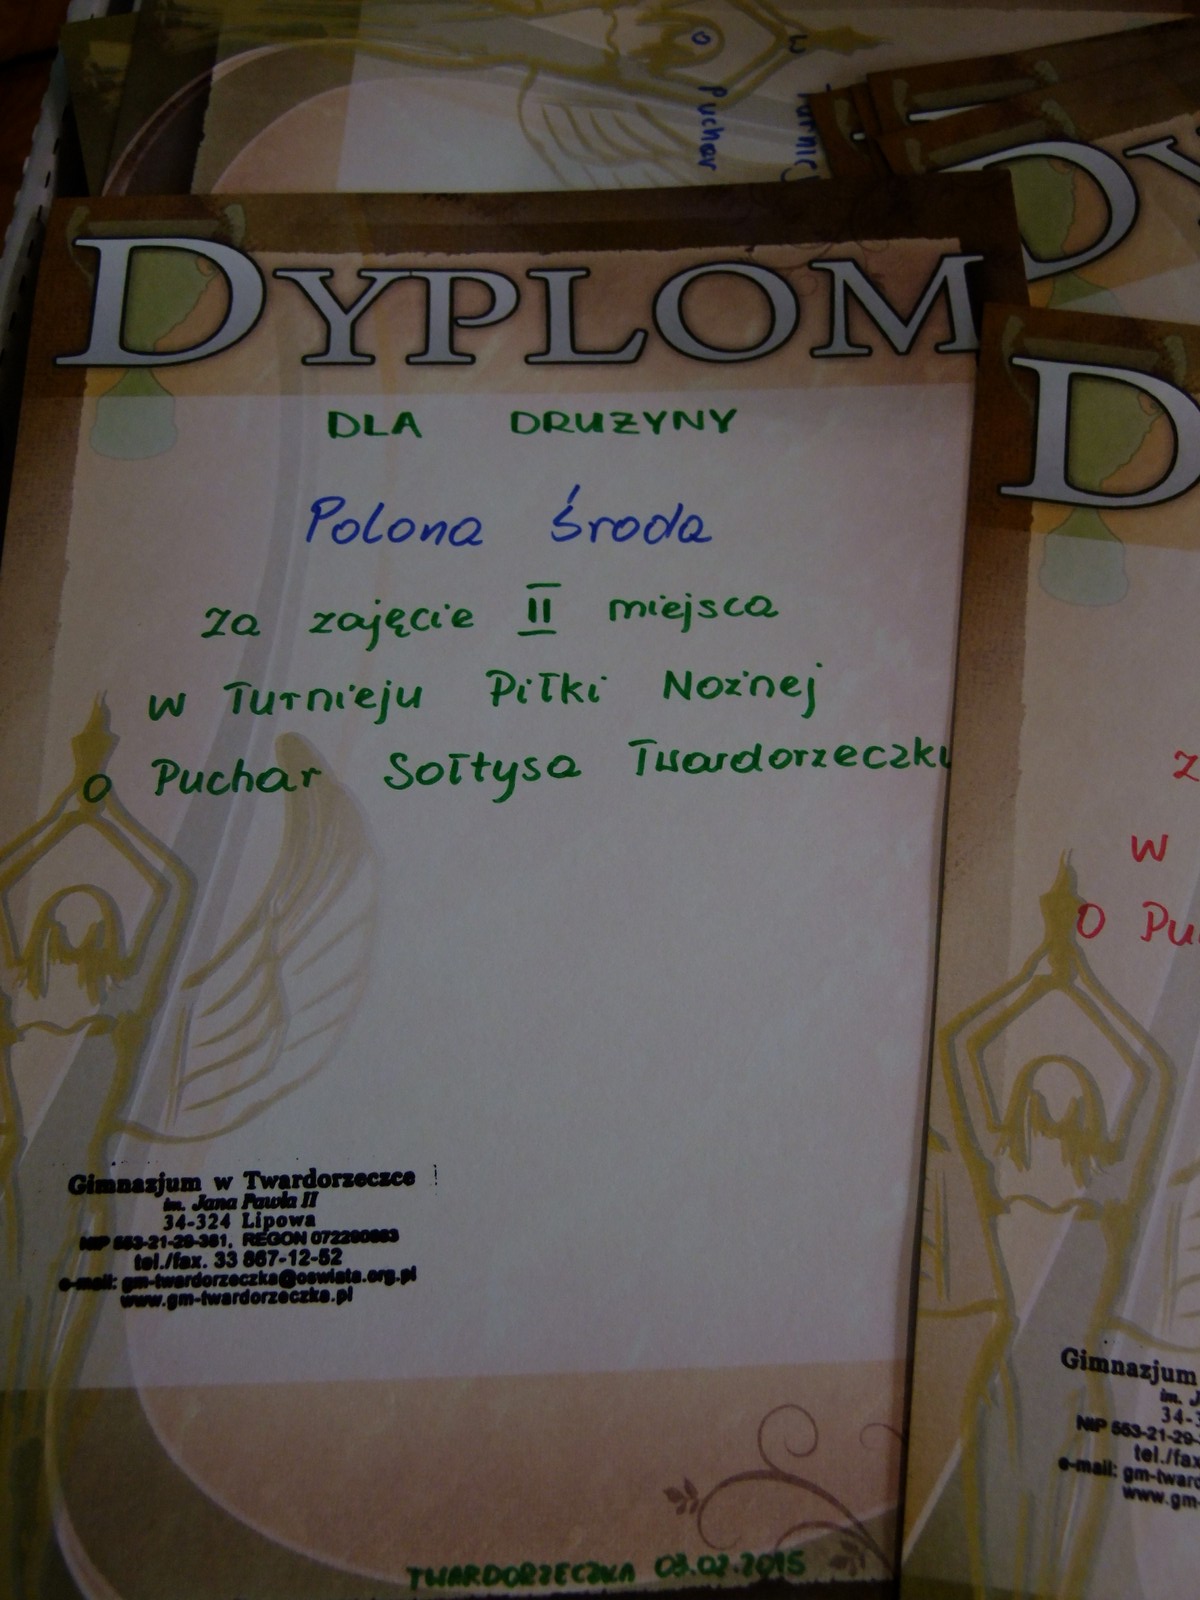 o Puchar
DYPLOM
DLA DRUŻYNY
Polona Środa
Za zajęcie II miejsca
w Turnieju Piłki Nożnej
o Puchar Sołtysa Twardorzeczki
Gimnazjum w Twardorzeczce
im. Jana Pawła II
34-324 Lipowa
NIP 553-21-29-361, REGON
tel./fax. 33 867-12-52
e-mail: gm-twardorzeczka@oswiata.org.pl
www.gm-twardorzeczka.pl
TWARDORZECZKA 03.02.2015
w
O
Gimnazjum